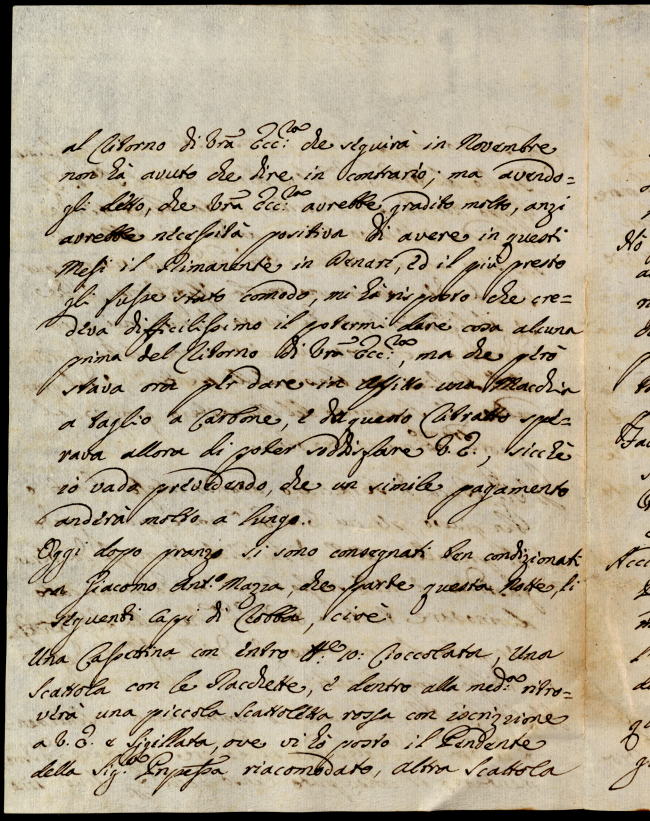 al Ritorno di Vrã Ecc.za che seguirà in Novembre
non hà avuto che dire in contrario; ma avendo=
gli detto, che Vrã Ecc.za avrebbe gradito molto, anzi
avrebbe necessità positiva di avere in questi
Mesi il Rimanente in Denari, ed il più presto
gli fusse stato comodo, mi hà risposto che cre=
deva difficilissimo il potermi dare cosa alcuna
prima del Ritorno di Vrã Ecc.za, ma che però
stava ora per dare in affitto una Macchia
a taglio a Carbone, e da questo Ritratto spe=
rava allora di poter soddisfare V.E., sicchè
io vado prevedendo, che un simile pagamento
anderà molto a lungo.
Oggi dopo pranzo si sono consegnati ben condizionati
a Giacomo Ant.o Mazza, che parte questa Notte, li
seguenti capi di Robba, cioè
Una Cassettina con entro 10: Cioccolata, Una
Scattola con le Racchette, e dentro alla med.ma ritro=
verà una piccola scattoletta rossa con iscrizione
a V.E. e sigillata, ove vi hò posto il Pendente
della Sig.ra Prñpessa riacomodato, altra Scattola